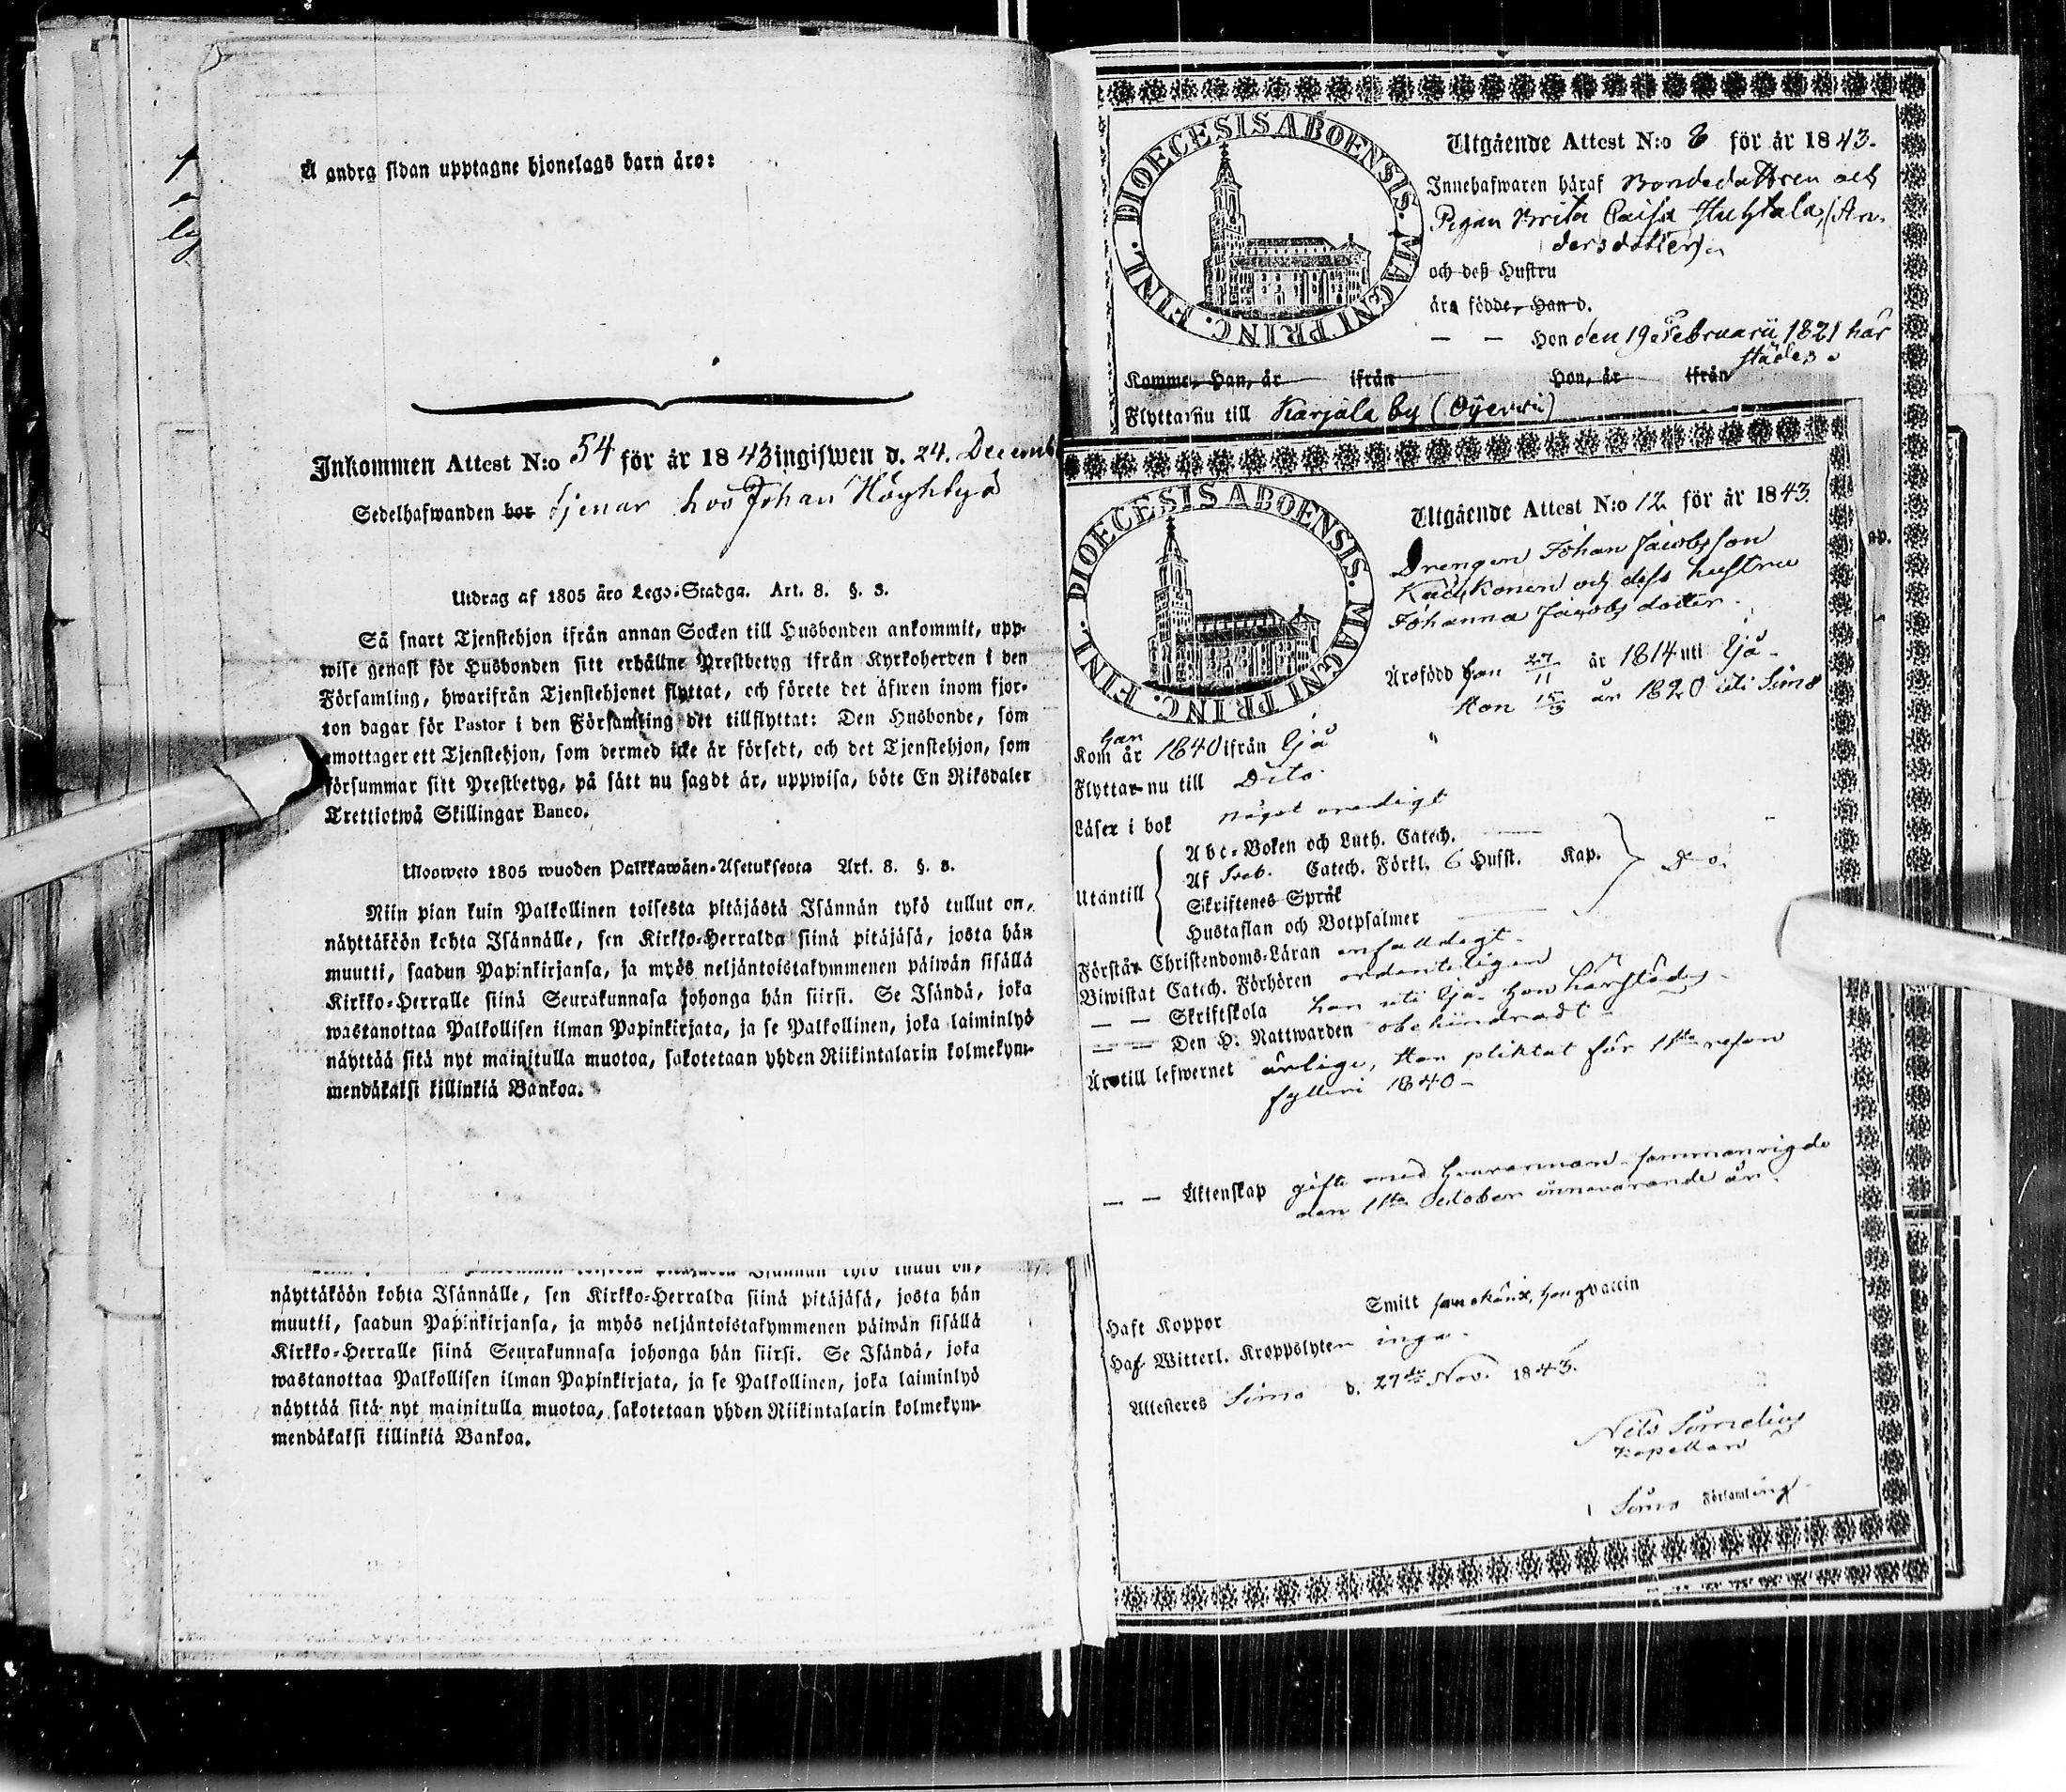 Å andra sidan upptagne hjonelags barn äro:
Inkommen Attest N:o 54 för år 1843 ingifwen d. 24. Decemb
Sedelhafwanden bor tjenar hos Johan
Utdrag af 1805 års Lego-Stadga. Art. 8. §. 3.
Så snart Tjenstehjon ifrån annan Socken till Husbonden ankommit, upp-
wise genast för Husbonden sitt erhållne Prestbetyg ifrån Kyrkoherden i den
Församling, hwarifrån Tjenstehjonet flyttat, och förete det äfwen inom fjor-
ton dagar för Pastor i den Församling det tillflyttat: Den Husbonde, som
emottager ett Tjenstehjon, som dermed icke är försedt, och det Tjenstehjon, som
försummar sitt Prestbetyg, på sätt nu sagdt är, uppwisa, böte En Riksdaler
Trettiotwå Skillingar Banco.
Ulosweto 1805 wuoden Palkkawäen-Asetuksesta Art. 8. §. 3.
Niin pian kuin Palkollinen toisesta pitäjästä Isännän tykö tullut on,
näyttäköön kohta Isännälle, sen Kirkko-Herralda siinä pitäjäsä, josta hän
muutti, saadun Papinkirjansa, ja myös neljäntoistakymmenen päiwän sisällä
Kirkko-Herralle siinä Seurakunnasa johonga hän siirsi. Se Isändä, joka
wastanottaa Palkollisen ilman Papinkirjata, ja se Palkollinen, joka laiminlyö
näyttää sitä nyt mainitulla muotoa, sakotetaan yhden Riikintalarin kolmekym-
mendäkaksi killinkiä Bankoa.
näyttäköön kohta Isännälle, sen Kirkko-Herralda siinä pitäjäsä, josta hän
muutti, saadun Papinkirjansa, ja myös neljäntoistakymmenen päiwän sisällä
Kirkko-Herralle siinä Seurakunnasa johonga hän siirsi. Se Isändä, joka
wastanottaa Palkollisen ilman Papinkirjata, ja se Palkollinen, joka laiminlyö
näyttää sitä nyt mainitulla muotoa, sakotetaan yhden Riikintalarin kolmekym-
mendäkaksi killinkiä Bankoa.
DIOECESIS ABOENSIS. MAGNI PRINC. FINL.
Utgående Attest N:o 8 för år 1843.
Innehafwaren häraf Bondedottren och
Pigan Brita Caisa Huhtala, (An-
dersdotter)
och deß Hustru
äro födde, Han d.
— — Hon den 19 Februarii 1821 här
städes.
Komme, Han, år ifrån Hon, år ifrån
Flytta nu till Karjala by
DIOECESIS ABOENSIS. MAGNI PRINC. FINL.
Utgående Attest N:o 12 för år 1843.
Drengen Johan Jacobsson
och dess hustru
Johanna Jacobsdotter.
Äro född han 27/11 år 1814 uti Ijo
Hon 15/3 år 1820 uti Simo
Han
Kom år 1840 ifrån Ijo
Flyttar nu till Dito.
Läser i bok något
Utantill
Abc-Boken och Luth. Catech.
Af Catech. Förkl. 6 Hufst. Kap.
Skriftenes Språk
Hustaflan och Botpsalmer
Do
Förstår Christendoms-Läran enfaldigt.
Biwistat Catech. Förhören ordenteligen
— — Skriftskola han uti Ijo hon härstädes
— — Den H. Nattwarden obehindradt
Äro till lefwernet ärlige, Han pliktat för 1sta resan
fylleri 1840 –
— — Äktenskap gifte med hvarannan, sammanvigde
den 1sta October innevarande år.
Haft Koppor Smitt
Haf. Witterl. Kroppslyten inga.
Attesteres Simo d. 27de Nov. 1843.
Nils
Kapellan
i Simo Församling.